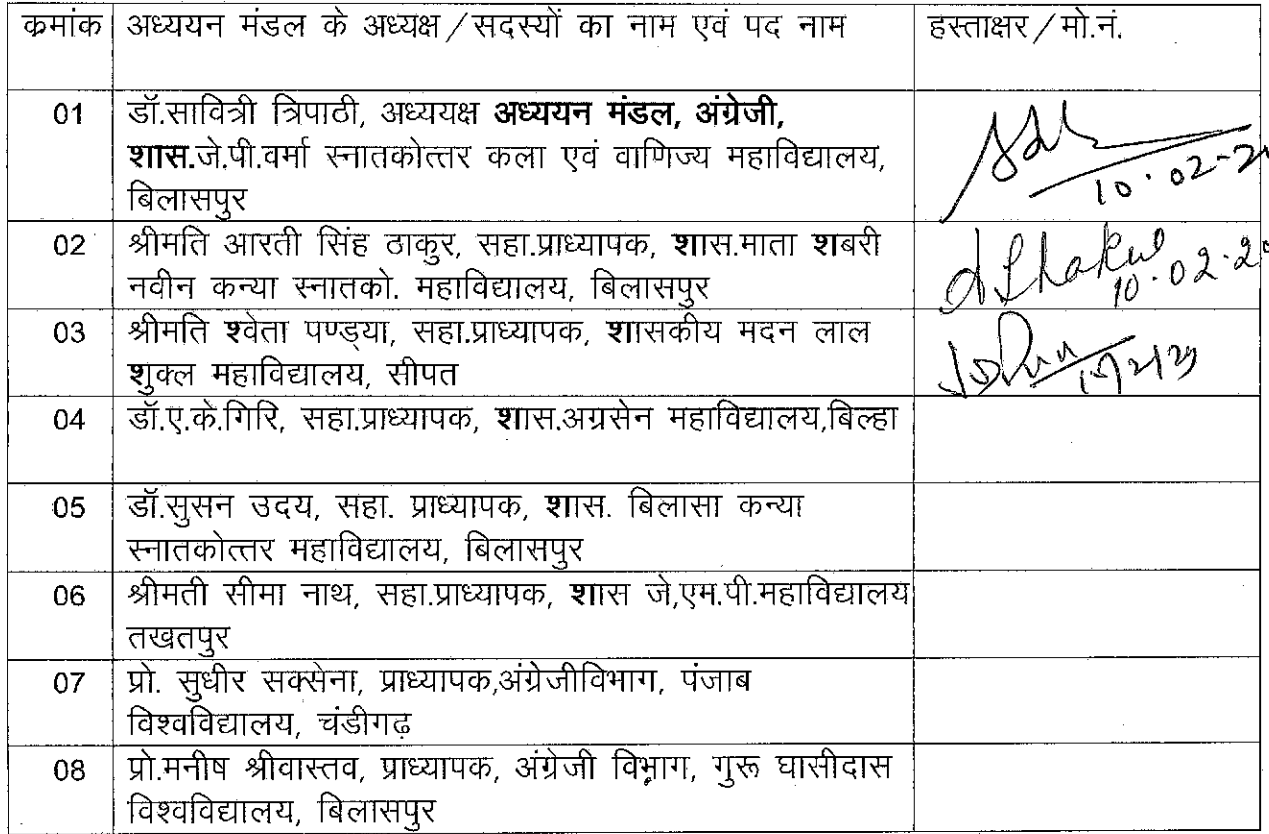 क्रमांक अध्ययन मंडल के अध्यक्ष/सदस्यों का नाम एवं पद नाम हस्ताक्षर/मो.नं.
01 डॉ.सावित्री त्रिपाठी, अध्ययक्ष अध्ययन मंडल, अंग्रेजी,
शास.जे.पी.वर्मा स्नातकोत्तर कला एवं वाणिज्य महाविद्यालय,
बिलासपुर
10.02-2
02 श्रीमति आरती सिंह ठाकुर, सहा.प्राध्यापक, शास.माता शबरी
नवीन कन्या स्नातको. महाविद्यालय, बिलासपुर
10.02.2
03 श्रीमति श्वेता पण्ड्या, सहा.प्राध्यापक, शासकीय मदन लाल
शुक्ल महाविद्यालय, सीपत
04 डॉ.ए.के.गिरि, सहा.प्राध्यापक, शास.अग्रसेन महाविद्यालय,बिल्हा
05 डॉ.सुसन उदय, सहा. प्राध्यापक, शास. बिलासा कन्या
स्नातकोत्तर महाविद्यालय, बिलासपुर
06 श्रीमती सीमा नाथ, सहा.प्राध्यापक, शास जे,एम.पी.महाविद्यालय
तखतपुर
07 प्रो. सुधीर सक्सेना, प्राध्यापक,अंग्रेजीविभाग, पंजाब
विश्वविद्यालय, चंडीगढ़
08 प्रो.मनीष श्रीवास्तव, प्राध्यापक, अंग्रेजी विभाग, गुरू घासीदास
विश्वविद्यालय, बिलासपुर